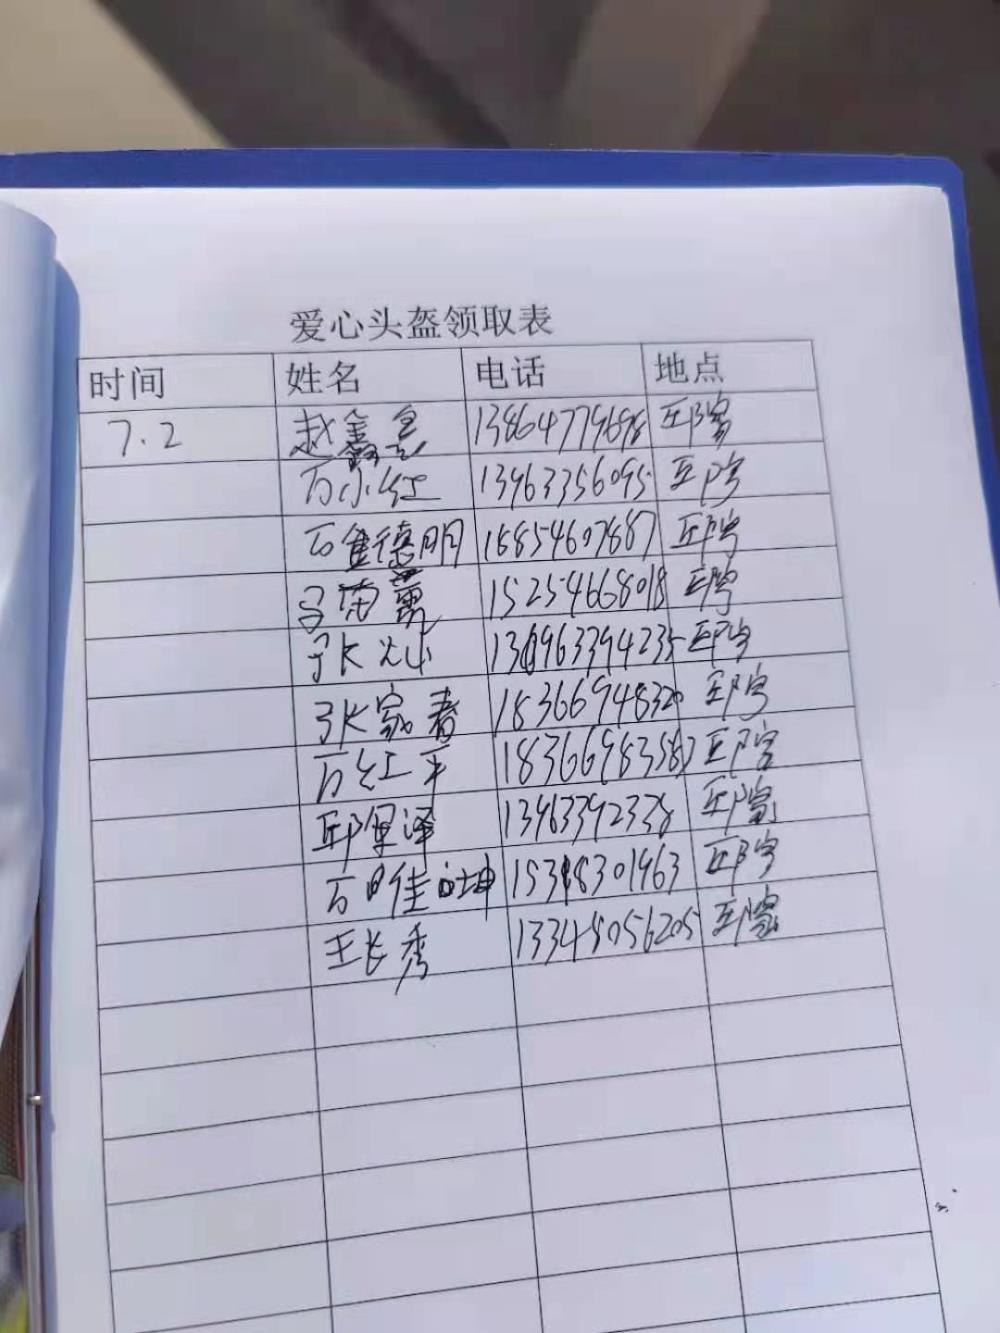 爱心头盔领取表
时间 姓名 电话 地点
7.2 赵鑫 13864779698 邱家
万小红 13963356095 邱家
万 德明 18854607887 邱家
吕荣 15254668018 邱家
张灿 13963394235 邱家
张家春 18366948320 邱家
万红平 18366983583 邱家
邱军泽 13963392338 邱家
万 佳坤 15318301963 邱家
王长秀 13348056205 邱家